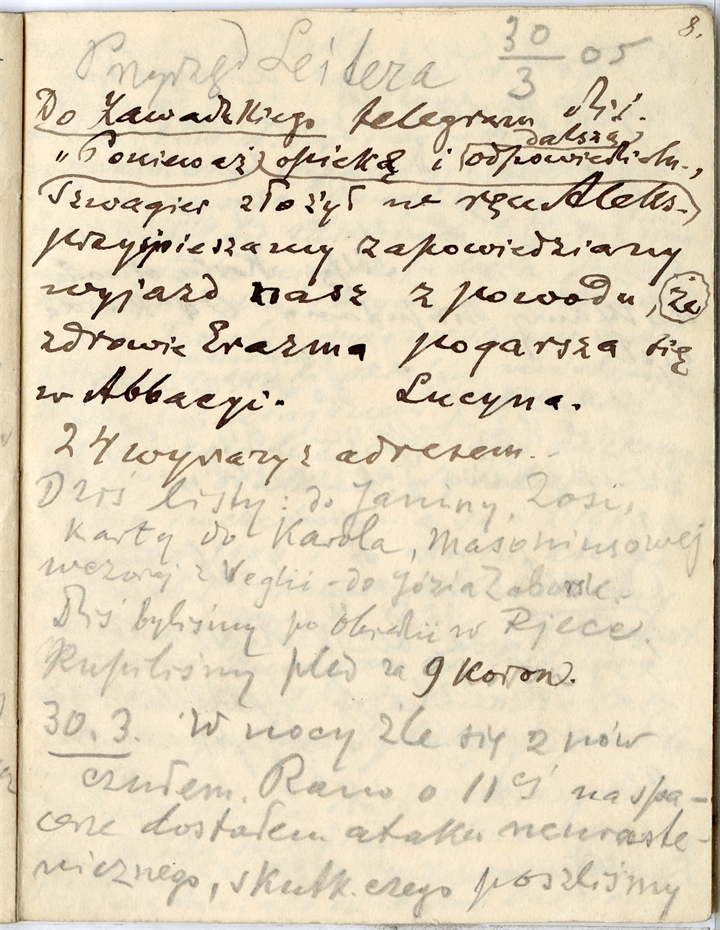 8.
Przyrząd Leitera 30/3 05
Do Zawadzkiego telegram dziś.
dalszą
"Ponieważ opiekę i odpowiedzialn.,
Szwagier złożył na ręce Aleks.,
przyspieszamy zapowiedziany
wyjazd nasz z powodu, że
zdrowie Erazma pogarsza się
w Abbacyi. Lucyna.
24 wyrazy z adresem.
Dziś listy: do Janiny, Zosi,
karty do Karola, Masoniusowej
wczoraj z Veglii - do Józia Zaborsk.
Dziś byliśmy po obiedzie w Rjece.
Kupiliśmy pled za 9 koron.
30. 3. W nocy źle się znów
czułem. Rano o 11ej na spa-
cerze dostałem ataku neuraste-
nicznego, skutk. czego poszliśmy